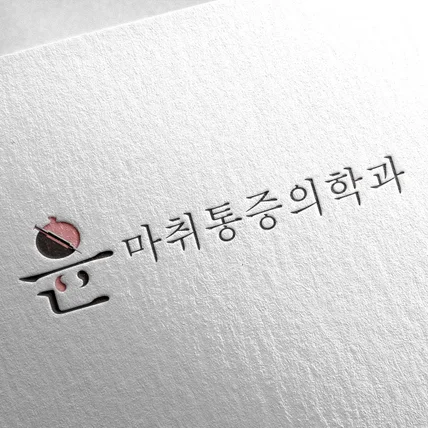 윤마취통증의학과